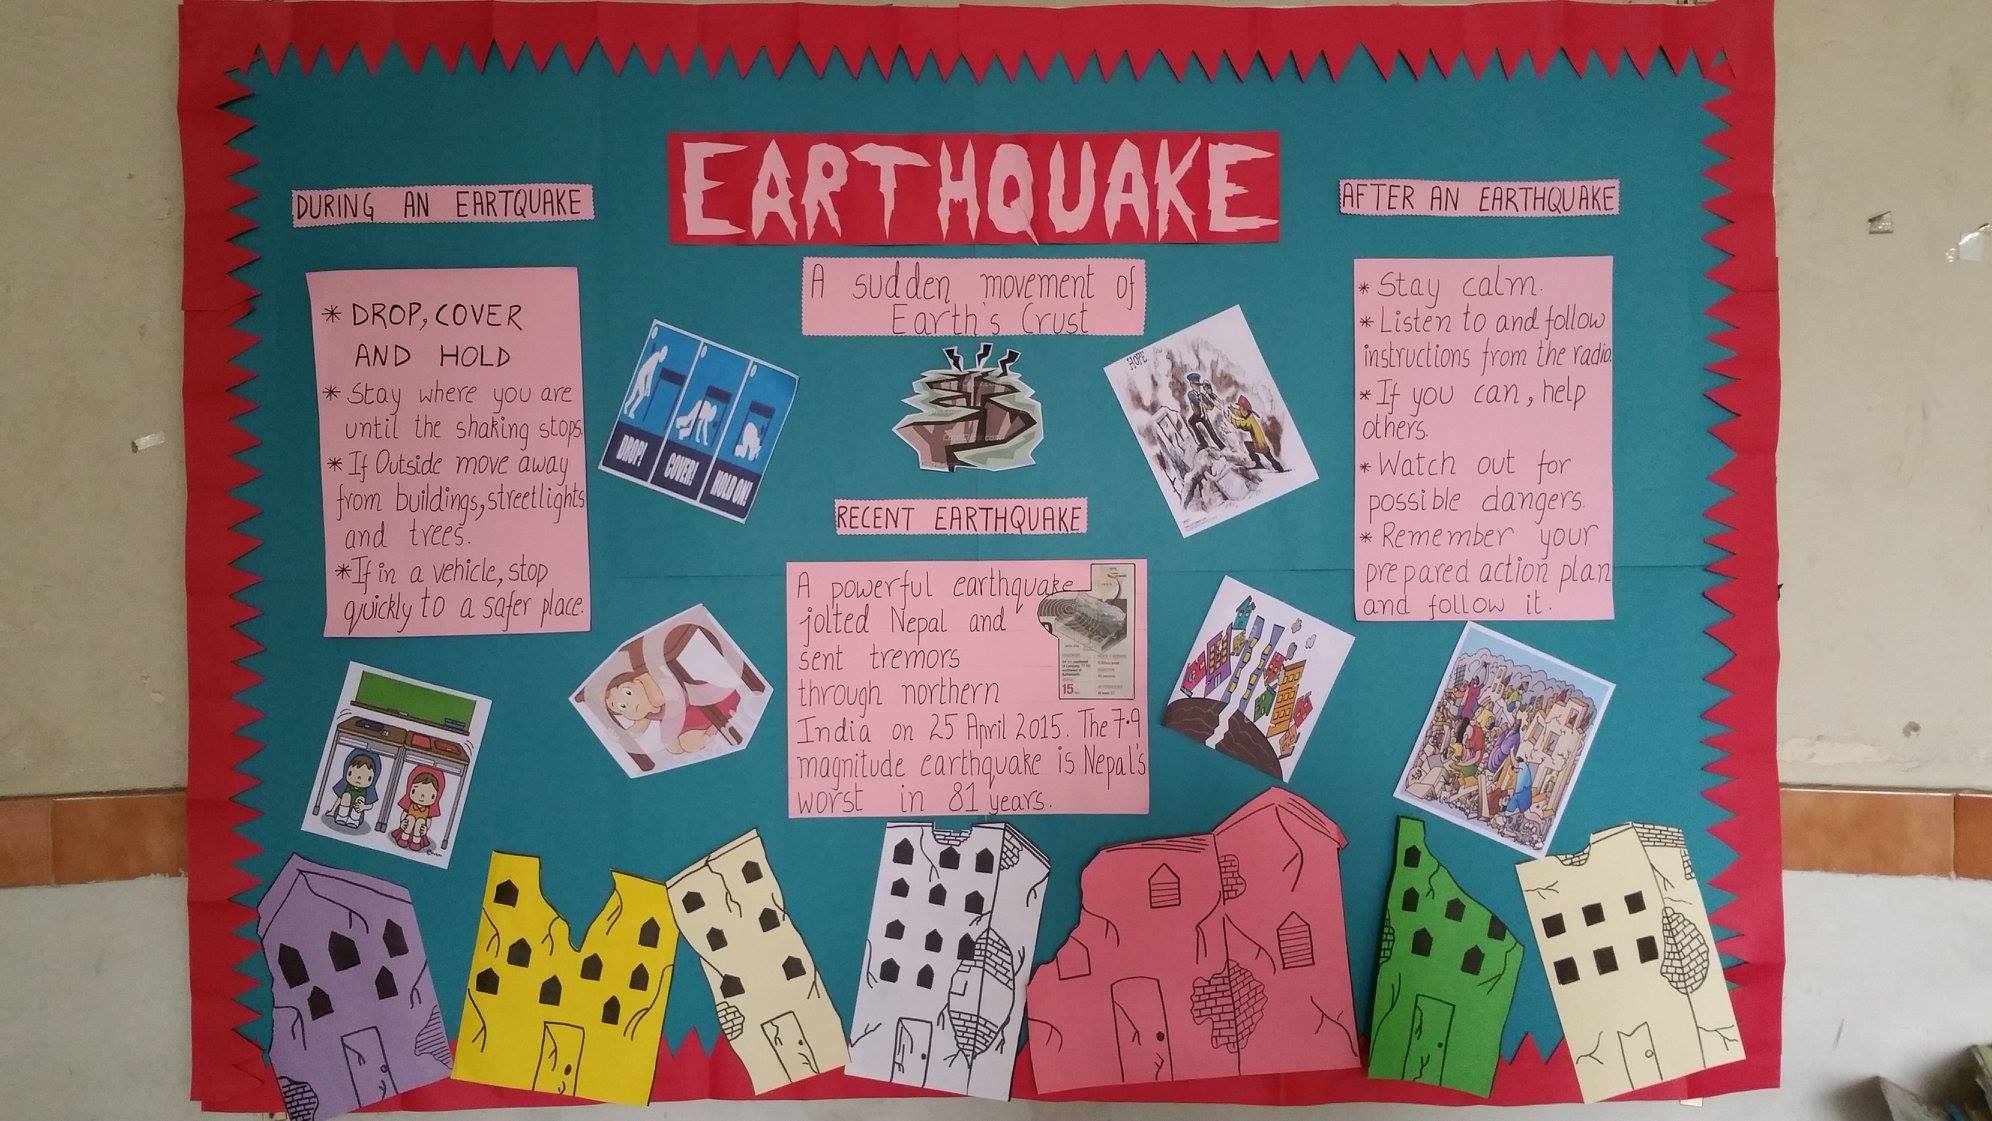 EARTHQUAKE
A sudden movement of
Earth's Crust
DURING AN EARTQUAKE
* DROP, COVER
AND HOLD
* Stay where you are
until the shaking stops.
* If Outside move away
from buildings, streetlights
and trees.
* If in a vehicle, stop
quickly to a safer place.
DROP!
COVER!
HOLD ON!
RECENT EARTHQUAKE
A powerful earthquake
jolted Nepal and
sent tremors
through northern
India on 25 April 2015. The 7.9
magnitude earthquake is Nepal's
worst in 81 years.
15
HOPE
AFTER AN EARTHQUAKE
* Stay calm.
* Listen to and follow
instructions from the radio.
* If you can, help
others.
* Watch out for
possible dangers.
* Remember your
prepared action plan
and follow it.